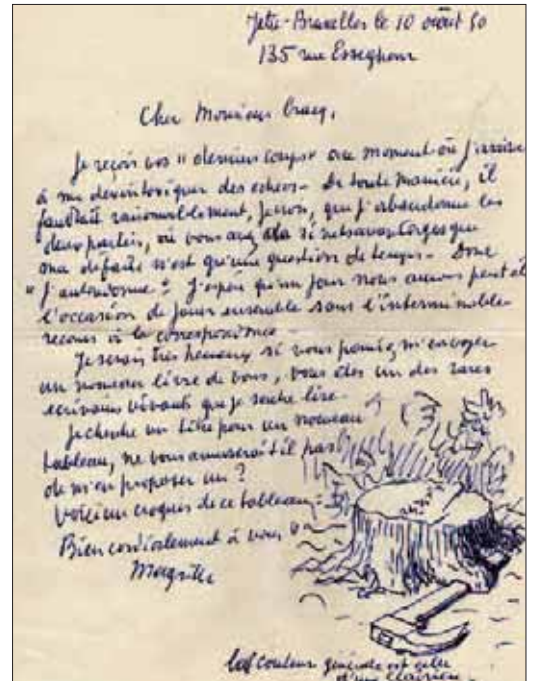 Jette-Bruxelles le 10 août 50
135 rue Esseghem
Cher Monsieur Gracq,
Je reçois vos "derniers coups" au moment où j'arrive
à me désintoxiquer des échecs - De toute manière, il
faudrait raisonnablement, je crois, que j'abandonne les
deux parties, où vous avez de si nets avantages que
ma défaite n'est qu'une question de temps - Donc
"j'abandonne". J'espère qu'un jour nous aurons peut êt
l'occasion de jouer ensemble sans l'interminable
recours à la correspondance -
Je serais très heureux si vous pouviez m'envoyer
un nouveau livre de vous, vous êtes un des rares
écrivains vivants que je sache lire -
Je cherche un titre pour un nouveau
tableau, ne vous amuserait il pas
de m'en proposer un ?
Voici un croquis de ce tableau :
Bien cordialement à vous
Magritte
la couleur générale est celle
d'une clairière -